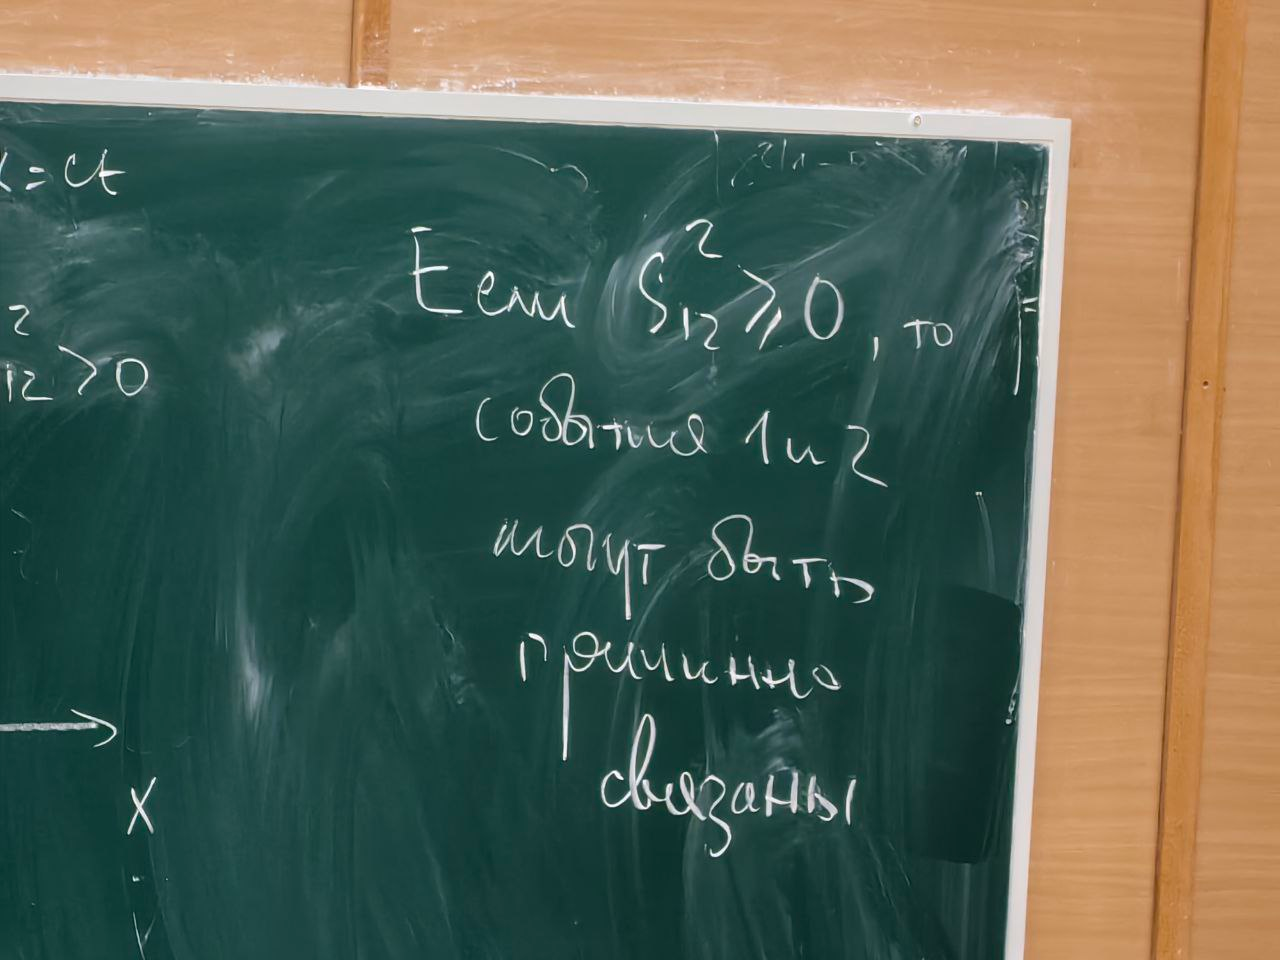 x = ct
S²₁₂ > 0
Если S²₁₂ ⩾ 0, то
события 1 и 2
могут быть
причинно
связаны
x